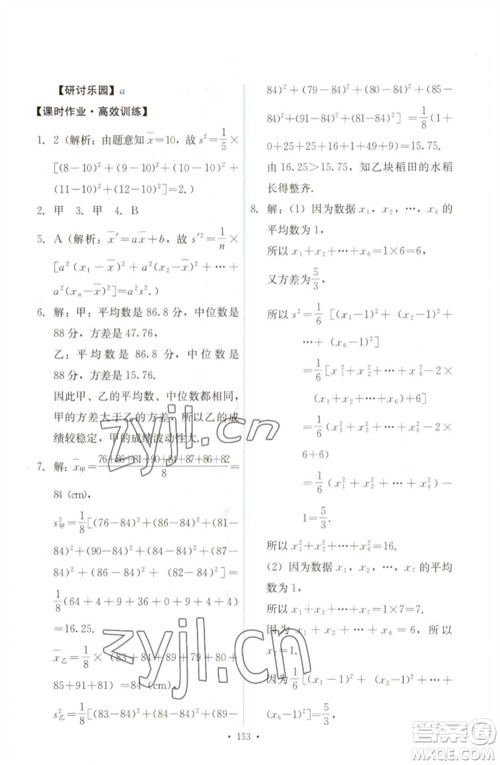 【研讨乐园】a
【课时作业·高效训练】
1. 2（解析：由题意知x̄=10，故 s²=1/5×
[(8-10)²+(9-10)²+(10-10)²+
(11-10)²+(12-10)²]=2.）
2. 甲 3. 甲 4. B
5. A（解析：x̄′=ax̄+b，故 s′²=1/n×
[a²(x₁-x̄)²+a²(x₂-x̄)²+…+
a²(xₙ-x̄)²]=a²s².）
6. 解：甲：平均数是 86.8 分，中位数是
88 分，方差是 47.76，
乙：平均数是 86.8 分，中位数是
88 分，方差是 15.76.
因此甲、乙的平均数、中位数都相同，
甲的方差大于乙的方差，所以乙的成
绩较稳定，甲的成绩波动性大.
7. 解：x̄甲=(76+86+81+90+84+87+86+82)/8=
84(cm)，
s²甲=1/8[(76-84)²+(86-84)²+(81-
84)²+(90-84)²+(84-84)²+(87-
84)²+(86-84)²+(82-84)²]=
1/8(64+4+9+36+0+9+4+4)
=16.25.
x̄乙=1/8×(82+84+85+89+79+80+
85+91+81)=84(cm)，
s²乙=1/8[(82-84)²+(84-84)²+(89-
84)²+(79-84)²+(80-84)²+(91-
84)²+(89-84)²+(81-84)²]=1/8(1+
0+25+25+16+49+1+9)=15.75.
由 16.25＞15.75，知乙块稻田的水稻
长得整齐.
8. 解：(1) 因为数据 x₁，x₂，…，x₆ 的
平均数为 1，
所以 x₁+x₂+…+x₆=1×6=6.
又方差为5/3，
所以 s²=1/6[(x₁-1)²+(x₂-1)²+…
+(x₆-1)²]
=1/6[x₁²+x₂²+…+x₆²-2×
(x₁+x₂+…+x₆)+6]
=1/6(x₁²+x₂²+…+x₆²-2×
6+6)
=1/6(x₁²+x₂²+…+x₆²)-1=5/3.
所以 x₁²+x₂²+…+x₆²=16.
(2) 因为数据 x₁，x₂，…，x₇ 的平均
数为 1，
所以 x₁+x₂+…+x₇=1×7=7.
因为 x₁+x₂+…+x₆=6，
所以 x₇=1.
因为1/6[(x₁-1)²+(x₂-1)²+…+
(x₆-1)²]=5/3，
• 153 •
zyjl.cn
zyjl.cn